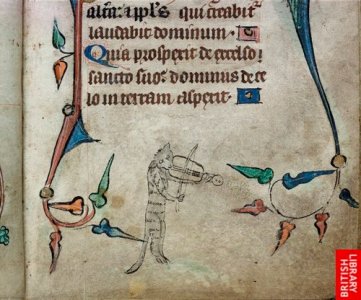 laudabit dominum.
Quia prosperit de excelso
sancto suo: dominus de ce
lo in terram asperit.
BRITISH
LIBRARY